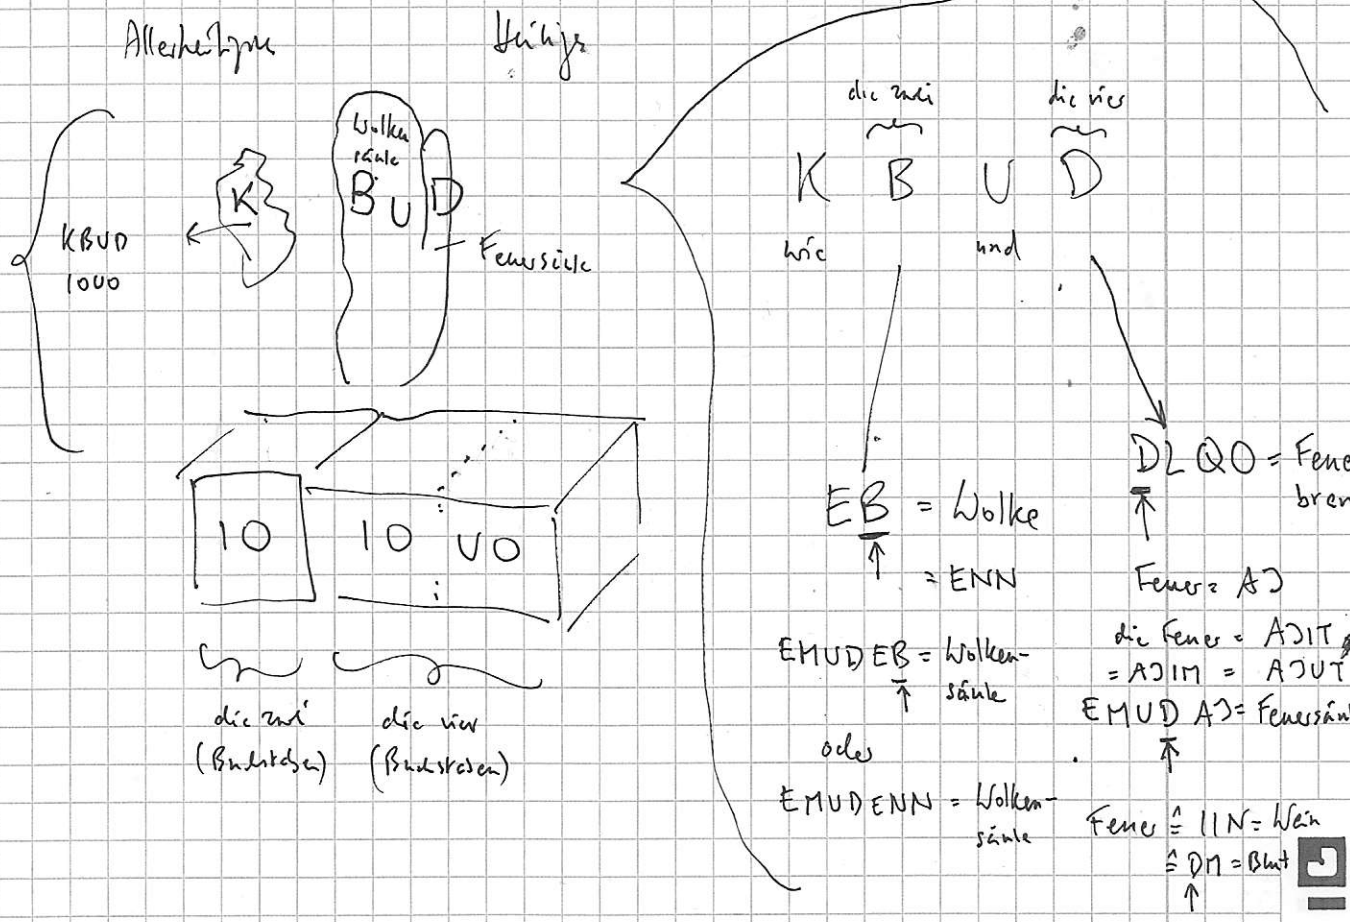 Allerheiligste
Heilige
Wolken
säule
K
B U D
KBUD
1OUO
Feuersäule
1O
1O UO
die zwei
(Buchstaben)
die vier
(Buchstaben)
die zwei
die vier
K B U D
wie
und
EB = Wolke
= ENN
EMUDEB = Wolken-
säule
oder
EMUDENN = Wolken-
säule
DLQO = Feue
bren
Feuer = AJ
die Feuer = AJIT
= AJIM = AJUT
EMUD AJ = Feuersäu
Feuer ≙ IIN = Wein
≙ DM = Blut